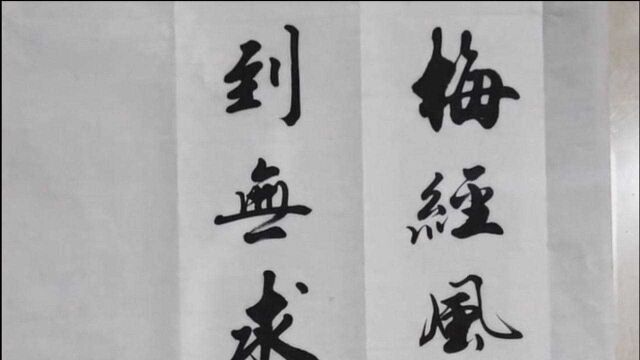 梅經風
到無求